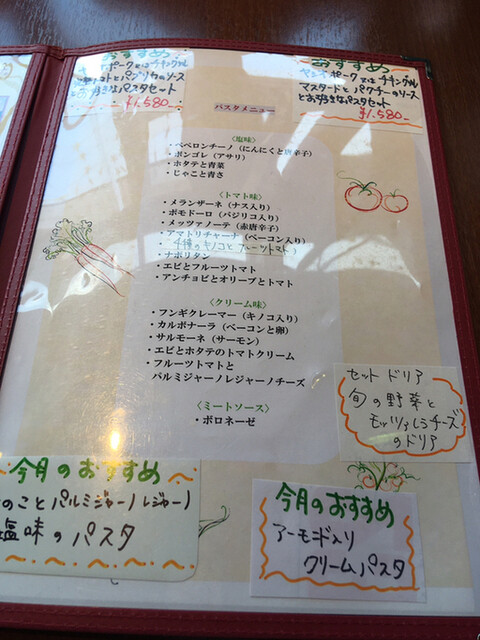 おすすめ
ポーク又はチキングリル
トとパプリカのソース
お好きなパスタセット
¥1,580-
おすすめ
ヤシオポーク又はチキングリル
マスタードとパクチーのソース
とお好きなパスタセット
¥1,580-
パスタメニュー
〈塩味〉
・ペペロンチーノ(にんにくと唐辛子)
・ボンゴレ(アサリ)
・ホタテと青菜
・じゃこと青さ
〈トマト味〉
・メランザーネ(ナス入り)
・ポモドーロ(バジリコ入り)
・メッツァノーテ(赤唐辛子)
・アマトリチャーナ(ベーコン入り)
・4種のキノコとフルーツトマト
・ナポリタン
・エビとフルーツトマト
・アンチョビとオリーブとトマト
〈クリーム味〉
・フンギクレーマー(キノコ入り)
・カルボナーラ(ベーコンと卵)
・サルモーネ(サーモン)
・エビとホタテのトマトクリーム
・フルーツトマトと
パルミジャーノレジャーノチーズ
〈ミートソース〉
・ボロネーゼ
セットドリア
旬の野菜と
モッツァレラチーズ
のドリア
今月のおすすめ
のことパルミジャーノレジャーノ
塩味のパスタ
今月のおすすめ
アーモンド入り
クリームパスタ